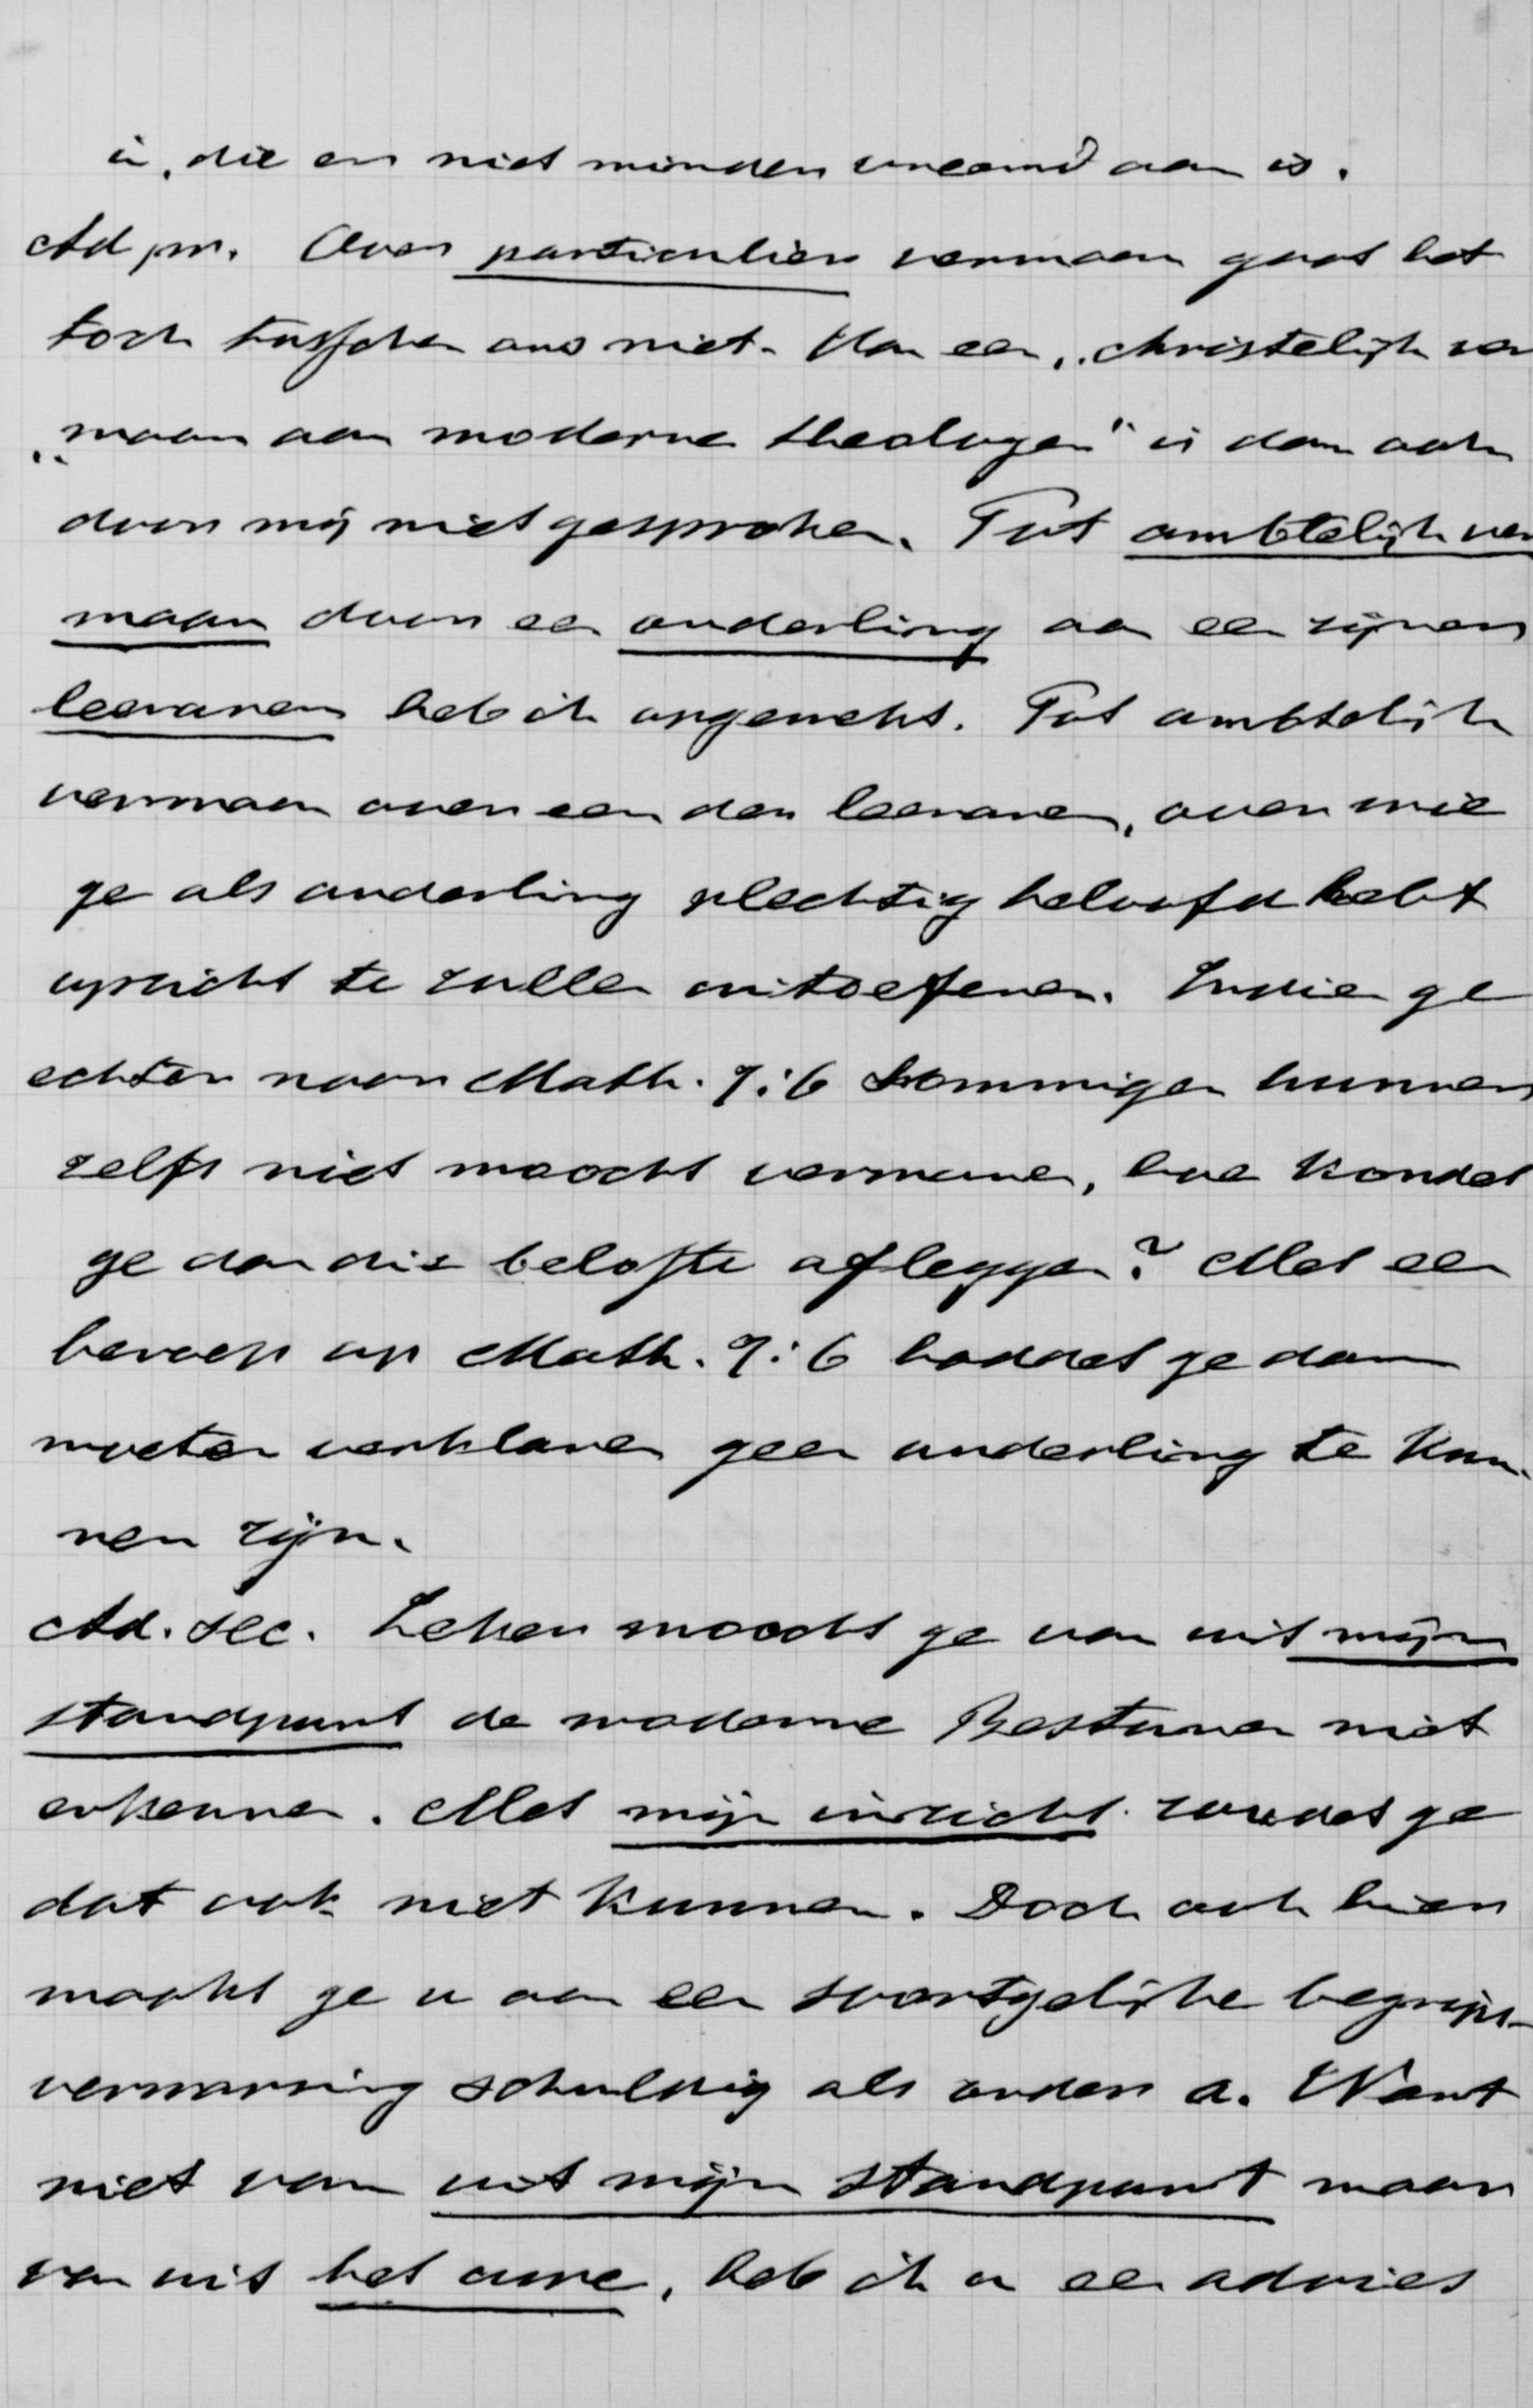 is, die er niet minder vreemd aan is.
Ad pr. Over particulier vermaan gaat het
toch tusschen ons niet. Van een „christelijk ver
„maan aan moderne theologen" is dan ook
door mij niet gesproken. Tot ambtelijk ver
maan door een ouderling aan een zijner
leeraren heb ik opgewekt. Tot ambtelijk
vermaan over een der leeraren, over wie
ge als ouderling plechtig beloofd hebt
opzicht te zullen uitoefenen. Indien ge
echter naar Matth. 7:6 sommigen hunner
zelfs niet moocht vermanen, hoe kondet
ge dan die belofte afleggen? Met een
beroep op Matth. 7:6 haddet ge dan
moeten verklaren geen ouderling te kun-
nen zijn.
Ad. sec. Zeker moocht ge van uit mijn
standpunt de moderne Besturen niet
erkennen. Met mijn inzicht zoudet ge
dat ook niet kunnen. Doch ook hier
maakt ge u aan een soortgelijke begrips-
verwarring schuldig als onder a. Want
niet van uit mijn standpunt maar
van uit het uwe, heb ik u een advies